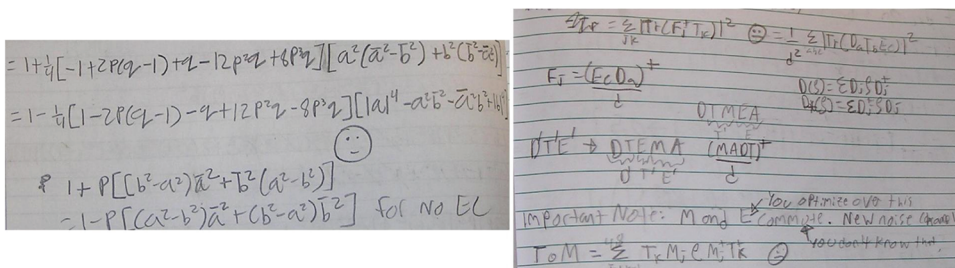 = 1 + 1/4 [-1 + 2P(q-1) + q - 12p²q + 8p³q] [a²(ā²-b̄²) + b²(b̄²-ā²)]
= 1 - 1/4 [1 - 2P(q-1) - q + 12p²q - 8p³q] [|a|⁴ - a²b̄² - ā²b² + |b|⁴]
1 + P[(b²-a²)ā² + b̄²(a²-b²)]
= 1 - P[(a²-b²)ā² + (b²-a²)b̄²] for no EC
= Σ |Tr(F_j† T_k)|² = 1/d² Σ |Tr(D_a T_b E_c)|²
jk
F_j = (E_c D_a)†
d
D(ρ) = Σ D_i ρ D_i†
DTMEA
D'T'E' → DTEMA (MADT)†
D' T' E' d
You optimize over this
Important Note: M and E commute. New noise
You don't know that.
T∘M = Σ T_k M_j ρ M_j† T_k†